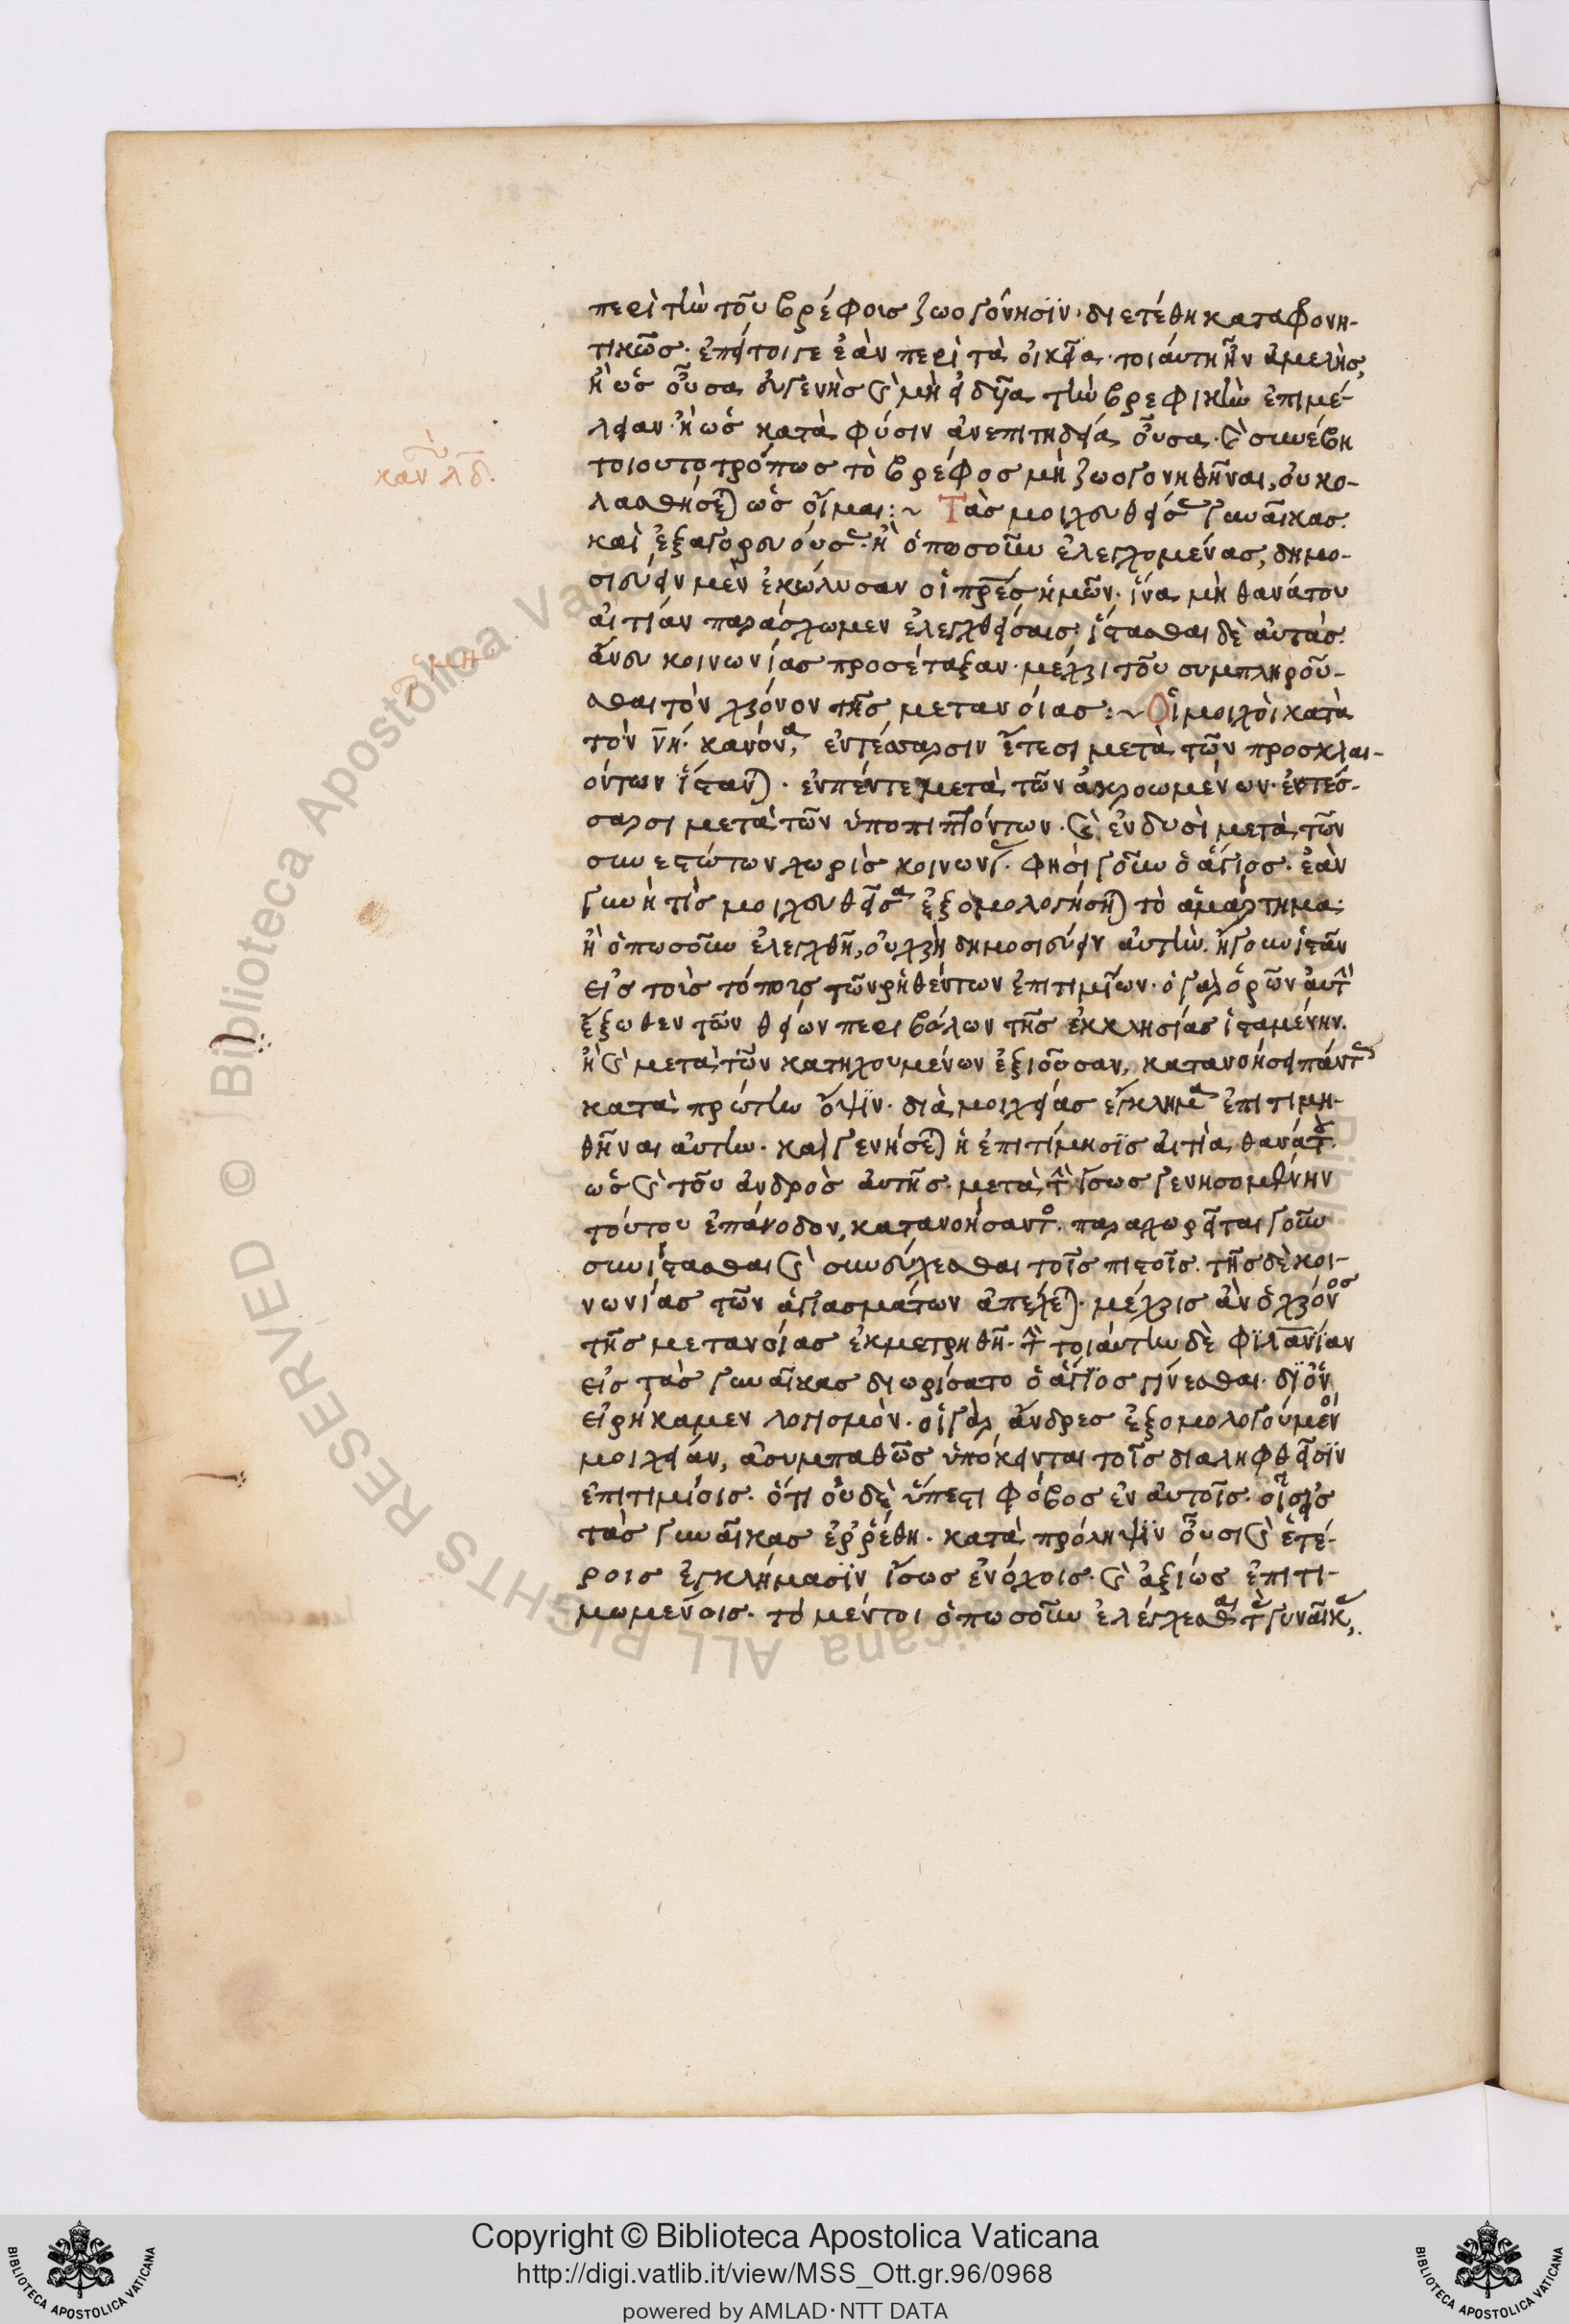 περὶ τὴν τοῦ βρέφους ζωογόνησϊν· διετέθη καταφρονη-
τικῶς· ἐπείτοιγε ἐὰν περὶ τὰ οἰκεῖα τοιάυτη ἦν ἀμελὴς,
ἢ ὡς οὖσα εὐγενὴς καὶ μὴ εἰδυῖα τὴν βρεφικὴν ἐπιμέ-
λειαν· ἢ ὡς κατὰ φύσιν ἀνεπιτηδεία οὖσα· καὶ συνέβη
καν λδ.
τοιουτοτρόπως τὸ βρέφος μὴ ζωογονηθῆναι, ου κο-
λασθήσεται ὡς οἶμαι:~ Τὰς μοιχευθείσας γυναῖκας
καὶ ἐξαγορευούσας· ἢ ὁπωσοῦν ἐλεγχομένας, δημο-
σιεύειν μὲν ἐκώλυσαν οἱ πρες ἡμῶν· ἵνα μὴ θανάτου
αἰτίαν παράσχωμεν ἐλεγχθείσαις· ἵστασθαι δὲ αὐτὰς
ἄνευ κοινωνίας προσέταξαν· μέχρι τοῦ συμπληροῦ-
σθαι τὸν χρόνον τῆς μετανοίας:~ Οἱ μοιχοὶ κατὰ
τὸν νη· κανόνα, ἐν τέσσαρσιν ἔτεσι μετὰ τῶν προσκλαι-
όντων ἵστανται· ἐν πέντε μετὰ τῶν ἀκροωμένων· ἐν τέσ-
σαρσι μετὰ τῶν ὑποπιπτόντων· καὶ ἐν δυσὶ μετὰ τῶν
συνεστώτων χωρὶς κοινωνίας· φησὶ γοῦν ὁ ἅγιος· ἐὰν
γυνή τις μοιχευθεῖσα ἐξομολογήσηται τὸ ἁμάρτημα·
ἢ ὁπωσοῦν ἐλεγχθῆ, οὐ χρὴ δημοσιεύειν αὐτὴν· ἤγουν ἱστᾶν
εἰς τοὺς τόπους τῶν ρηθέντων ἐπιτιμίων· ὁ γὰρ ὁρῶν αὐτὴν
ἔξωθεν τῶν θείων περιβόλων τῆς ἐκκλησίας ἱσταμένην·
ἢ καὶ μετὰ τῶν κατηχουμένων ἐξιοῦσαν, κατανοήσει πάντως
κατὰ πρώτην ὄψϊν· διὰ μοιχείας ἔγκλημα ἐπιτιμη-
θῆναι αὐτὴν· καὶ γενήσεται ἡ ἐπιτίμησϊς αἰτία θανάτου·
ὡς καὶ τοῦ ἀνδρὸς αὐτῆς· μετὰ τὴν ἴσως γενησομένην
τούτου ἐπάνοδον, κατανοήσαντος· παραχωρεῖται γοῦν
συνίστασθαι καὶ συνεύχεσθαι τοῖς πιστοῖς· τῆς δὲ κοι-
νωνίας τῶν ἁγιασμάτων ἀπέχεται· μέχρις ἂν ὁ χρόνος
τῆς μετανοίας ἐκμετρηθῆ· τὴν τοιάυτην δὲ φϊλανϊαν
εἰς τὰς γυναῖκας διωρίσατο ὁ ἅγϊος γίνεσθαι· δι' ὃν
εἰρήκαμεν λογισμὸν· οἱ γὰρ ἄνδρες ἐξομολογούμενοι
μοιχείαν, ἀσυμπαθῶς ὑπόκεινται τοῖς διαληφθεῖσϊν
ἐπιτιμίοις· ὅτι οὐδὲ ὕπεστι φόβος ἐν αὐτοῖς· οἷος εἰς
τὰς γυναῖκας ἐρρέθη· κατὰ πρόληψϊν οὖσι καὶ ἑτέ-
ροις ἐγκλήμασϊν ἴσως ἐνόχοις· καὶ ἀξίως ἐπιτι-
μωμένοις· τὸ μέντοι ὁπωσοῦν ἐλέγχεσθαι τὰς γυναῖκας,
© Biblioteca Apostolica Vaticana ALL RIGHTS RESERVED
Copyright © Biblioteca Apostolica Vaticana
http://digi.vatlib.it/view/MSS_Ott.gr.96/0968
powered by AMLAD·NTT DATA
BIBLIOTECA APOSTOLICA VATICANA
BIBLIOTECA APOSTOLICA VATICANA